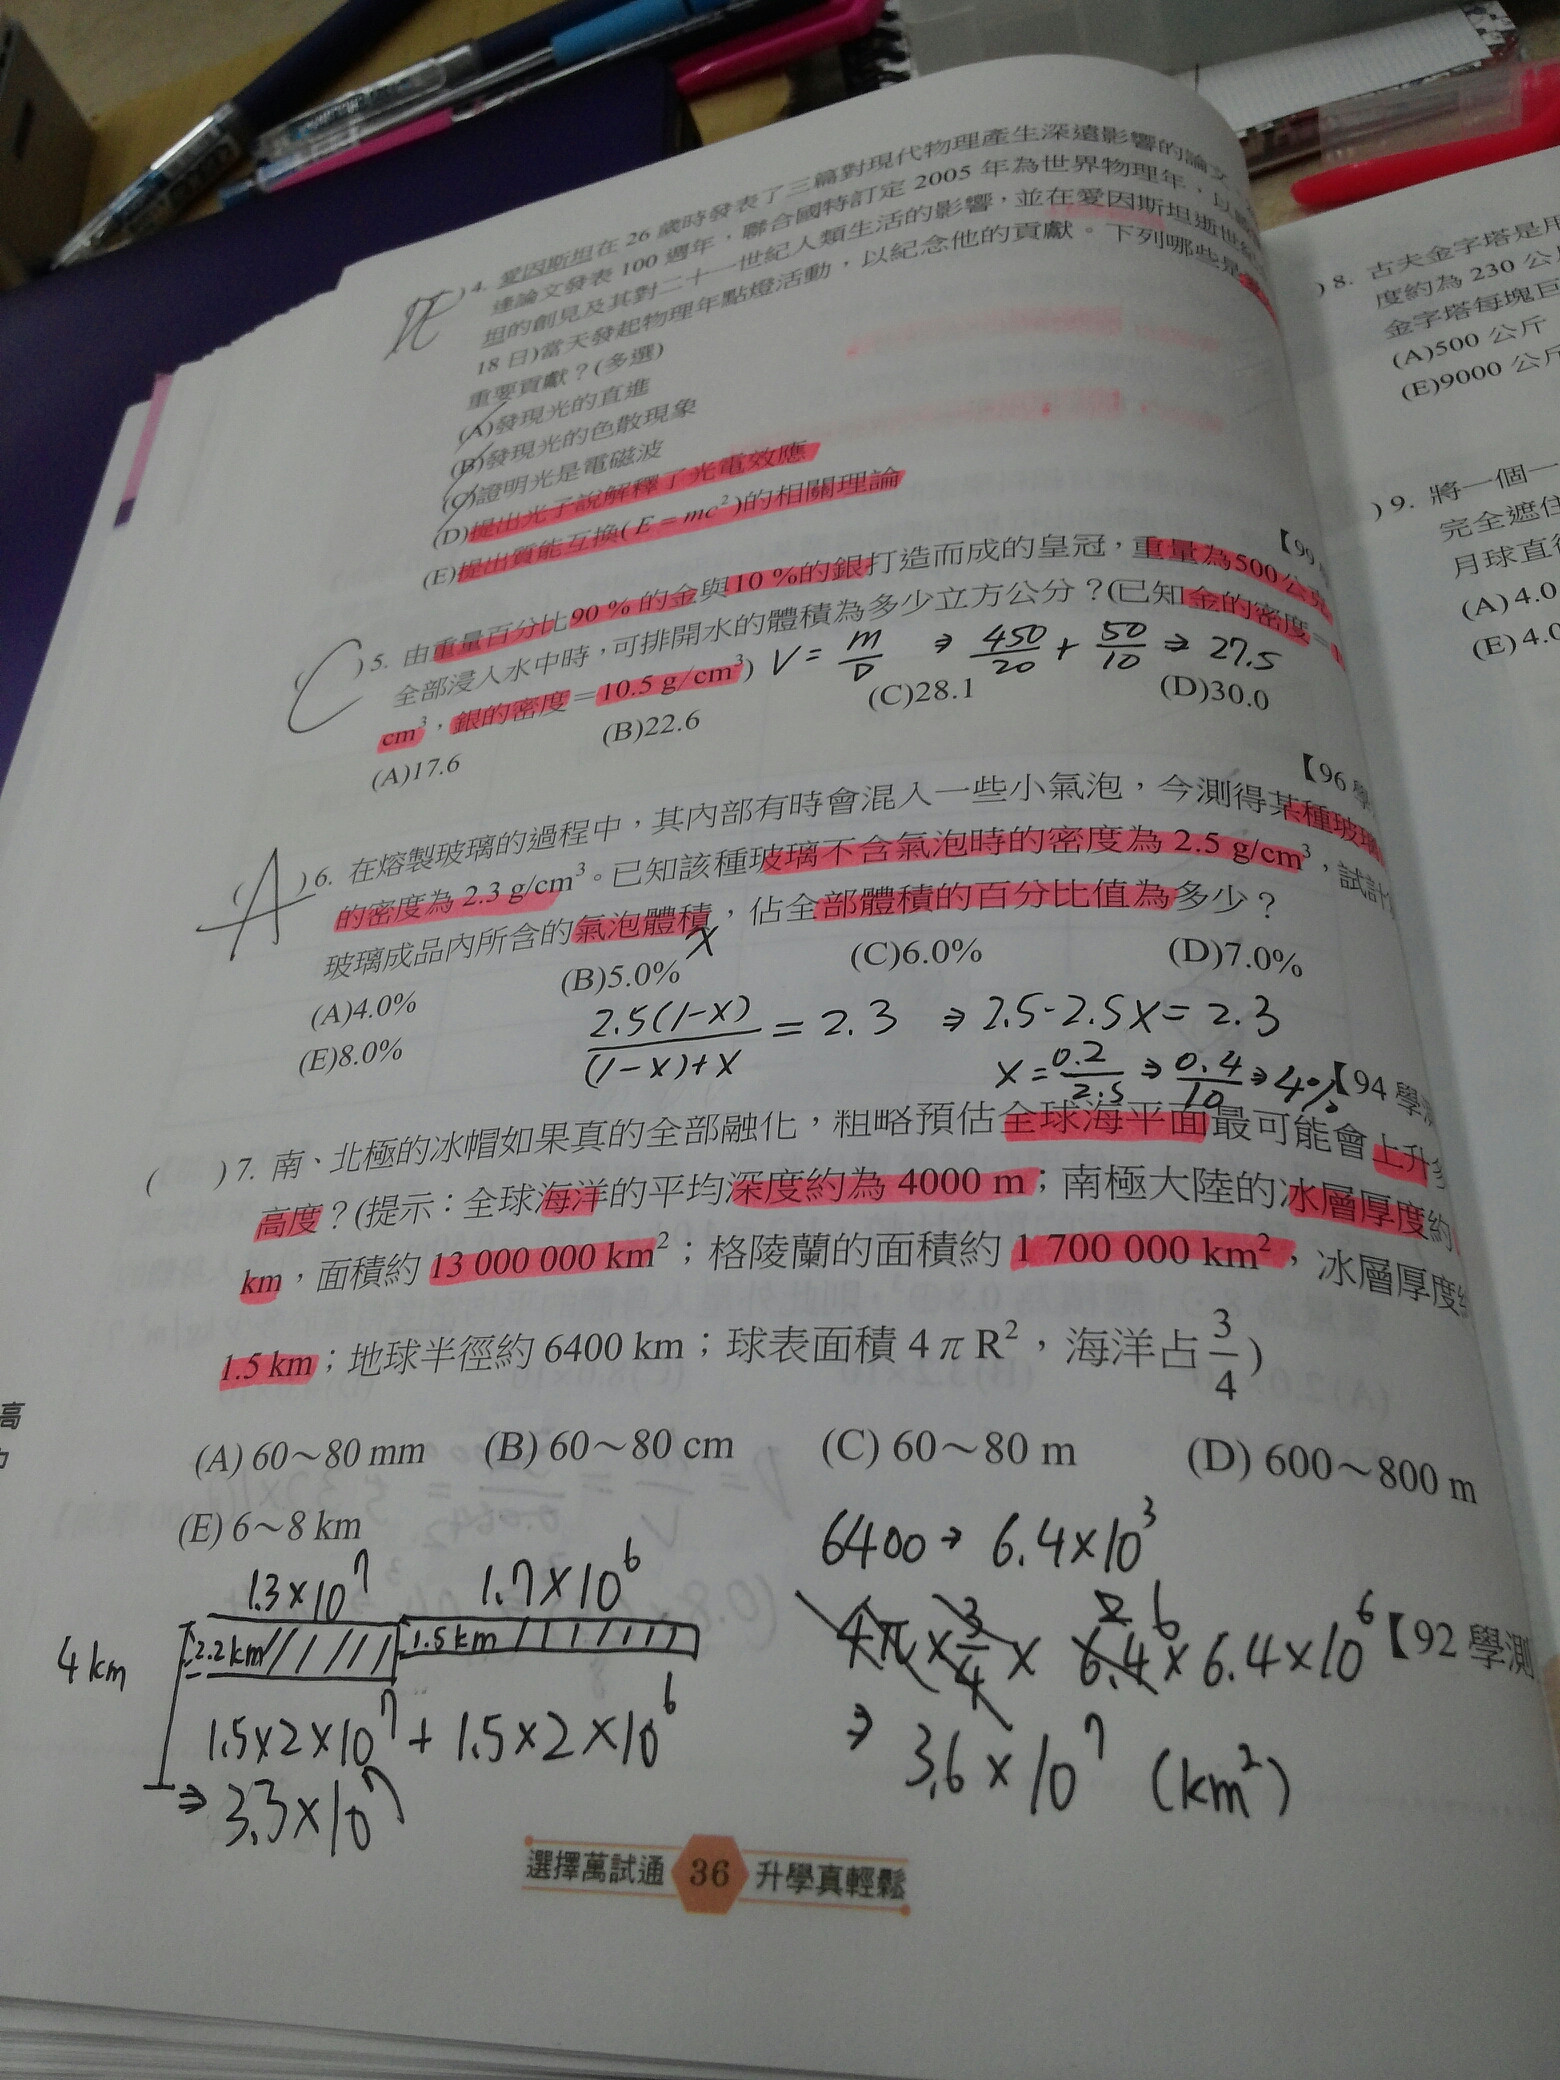 4. 愛因斯坦在 26 歲時發表了三篇對現代物理產生深遠影響的論文
連論文發表 100 週年，聯合國特訂定 2005 年為世界物理年，以
坦的創見及其對二十一世紀人類生活的影響，並在愛因斯坦逝世
18 日)當天發起物理年點燈活動，以紀念他的貢獻。下列哪些是
重要貢獻？(多選)
(A)發現光的直進
(B)發現光的色散現象
(C)證明光是電磁波
(D)提出光子說解釋了光電效應
(E)提出質能互換(E=mc²)的相關理論
【99
(C)5. 由重量百分比90 %的金與10 %的銀打造而成的皇冠，重量為500公克
全部浸入水中時，可排開水的體積為多少立方公分？(已知金的密度=
cm³，銀的密度=10.5 g/cm³) V = m/D ⇒ 450/20 + 50/10 ⇒ 27.5
(A)17.6 (B)22.6 (C)28.1 (D)30.0
【96 學
(A)6. 在熔製玻璃的過程中，其內部有時會混入一些小氣泡，今測得某種玻璃
的密度為 2.3 g/cm³。已知該種玻璃不含氣泡時的密度為 2.5 g/cm³，試計
玻璃成品內所含的氣泡體積，佔全部體積的百分比值為多少？
x
(A)4.0% (B)5.0% (C)6.0% (D)7.0%
(E)8.0%
2.5(1-x)/(1-x)+x = 2.3 ⇒ 2.5-2.5x = 2.3
x = 0.2/2.5 ⇒ 0.4/10 ⇒ 4%
【94 學測
( )7. 南、北極的冰帽如果真的全部融化，粗略預估全球海平面最可能會上升多
高度？(提示：全球海洋的平均深度約為 4000 m；南極大陸的冰層厚度約
km，面積約 13 000 000 km²；格陵蘭的面積約 1 700 000 km²，冰層厚度約
1.5 km；地球半徑約 6400 km；球表面積 4πR²，海洋占 3/4)
(A) 60～80 mm (B) 60～80 cm (C) 60～80 m (D) 600～800 m
(E) 6～8 km
【92 學測
1.3×10⁷ 1.7×10⁶
4 km 2.2km 1.5km
1.5×2×10⁷ + 1.5×2×10⁶
⇒ 3.3×10⁷
6400 ⇒ 6.4×10³
4π × 3/4 × 6.4 × 6.4×10⁶
⇒ 3.6×10⁷ (km²)
選擇萬試通 36 升學真輕鬆
)8. 古夫金字塔是用
度約為 230 公
金字塔每塊巨
(A)500 公斤
(E)9000 公斤
)9. 將一個一
完全遮住
月球直徑
(A)4.0
(E)4.0
高